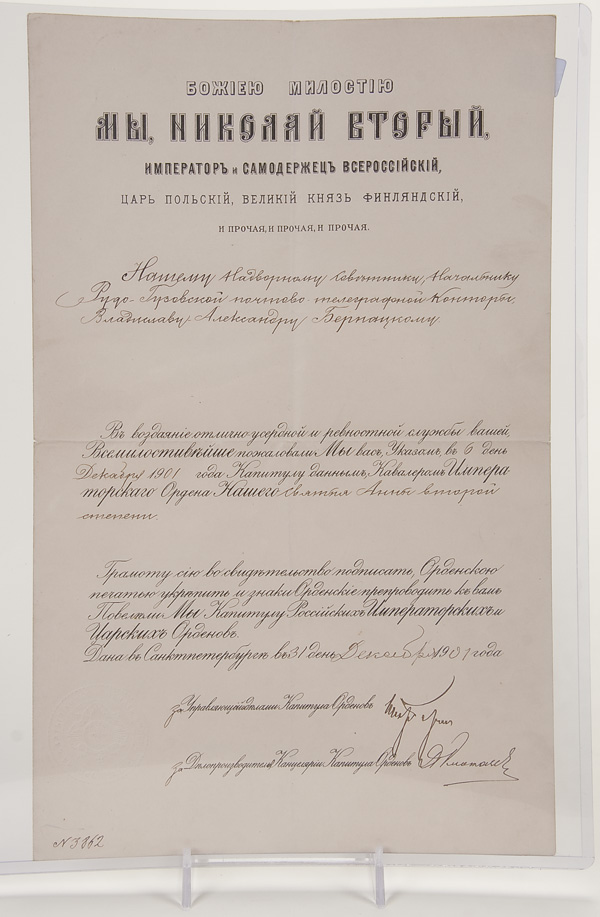 БОЖІЕЮ МИЛОСТІЮ
МЫ, НИКОЛАЙ ВТОРЫЙ,
ИМПЕРАТОРЪ и САМОДЕРЖЕЦЪ ВСЕРОССІЙСКІЙ,
ЦАРЬ ПОЛЬСКІЙ, ВЕЛИКІЙ КНЯЗЬ ФИНЛЯНДСКІЙ,
И ПРОЧАЯ, И ПРОЧАЯ, И ПРОЧАЯ.
Нашему Надворному Совѣтнику, Начальнику
Рудо-Гузовской почтово-телеграфной Конторы,
Владиславу-Александру Бернацкому.
Въ воздаяніе отлично усердной и ревностной службы вашей,
Всемилостивѣйше пожаловали Мы васъ, Указомъ, въ 6 день
Декабря 1901 года Капитулу даннымъ, Кавалеромъ Импера
торскаго Ордена Нашего Святыя Анны второй
степени.
Грамоту сію во свидѣтельство подписать, Орденскою
печатью укрѣпить и знаки Орденскіе препроводить къ вамъ
Повелѣли Мы Капитулу Россійскихъ Императорскихъ и
Царскихъ Орденовъ.
Дана въ Санктпетербургѣ въ 31 день Декабря 1901 года
за Управляющей дѣлами Капитула Орденовъ
за Дѣлопроизводителя Канцеляріи Капитула Орденовъ
N 3862